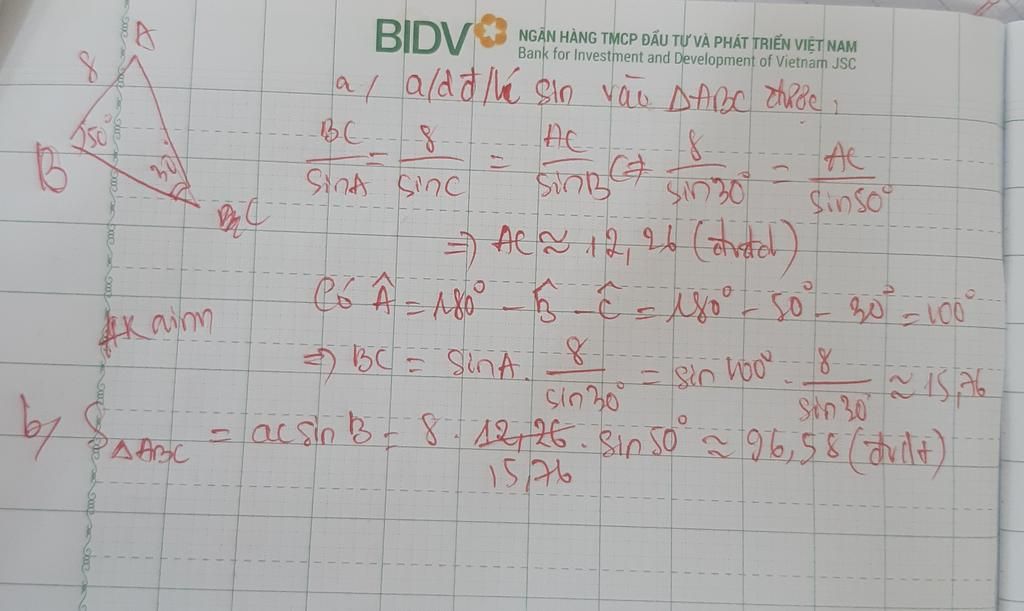 BIDV NGÂN HÀNG TMCP ĐẦU TƯ VÀ PHÁT TRIỂN VIỆT NAM
Bank for Investment and Development of Vietnam JSC
A
8
50°
B
30°
C
a/ a/d đ/lí sin vào △ABC được,
BC/sinA = 8/sinC = AC/sinB ⇔ 8/sin30° = AC/sin50°
⇒ AC ≈ 12,26 (đvđd)
Có Â = 180° - B̂ - Ĉ = 180° - 50° - 30° = 100°
⇒ BC = sinA . 8/sin30° = sin100° . 8/sin30° ≈ 15,76
b/ S△ABC = acsinB = 8 . 12,26 . sin50° ≈ 96,58 (đvdt)
15,76